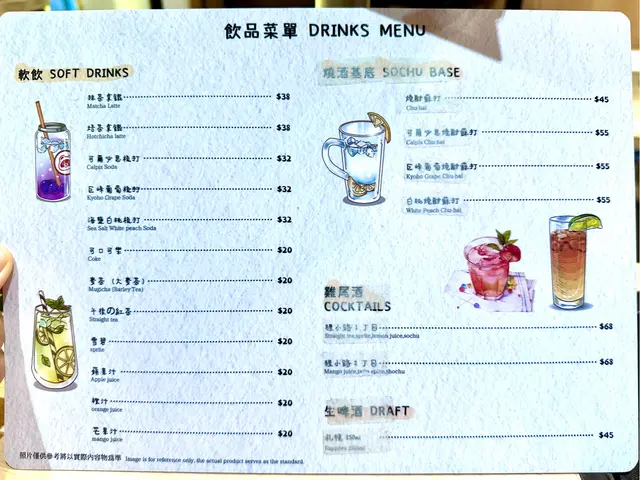 飲品菜單 DRINKS MENU
軟飲 SOFT DRINKS
抹茶拿鐵 $38
Matcha Latte
焙茶拿鐵 $38
Hotchicha latte
可爾必思梳打 $32
Calpis Soda
巨峰葡萄梳打 $32
Kyoho Grape Soda
海鹽白桃梳打 $32
Sea Salt White peach Soda
可口可樂 $20
Coke
麥茶 (大麥茶) $20
Mugicha (Barley Tea)
午後の紅茶 $20
Straight tea
雪碧 $20
sprite
蘋果汁 $20
Apple juice
橙汁 $20
orange juice
芒果汁 $20
mango juice
照片僅供參考將以實際內容物為準 Image is for reference only, the actual product serves as the standard.
燒酒基底 SOCHU BASE
燒酎蘇打 $45
Chu-hai
可爾必思燒酎蘇打 $55
Calpis Chu-hai
巨峰葡萄燒酎蘇打 $55
Kyoho Grape Chu-hai
白桃燒酎蘇打 $55
White Peach Chu-hai
雞尾酒
COCKTAILS
橫小路1丁目 $68
Straight tea,sprite,lemon juice,sochu
橫小路2丁目 $68
Mango juice, spite,shochu
生啤酒 DRAFT
札幌 350ml $45
Sapporo 350ml